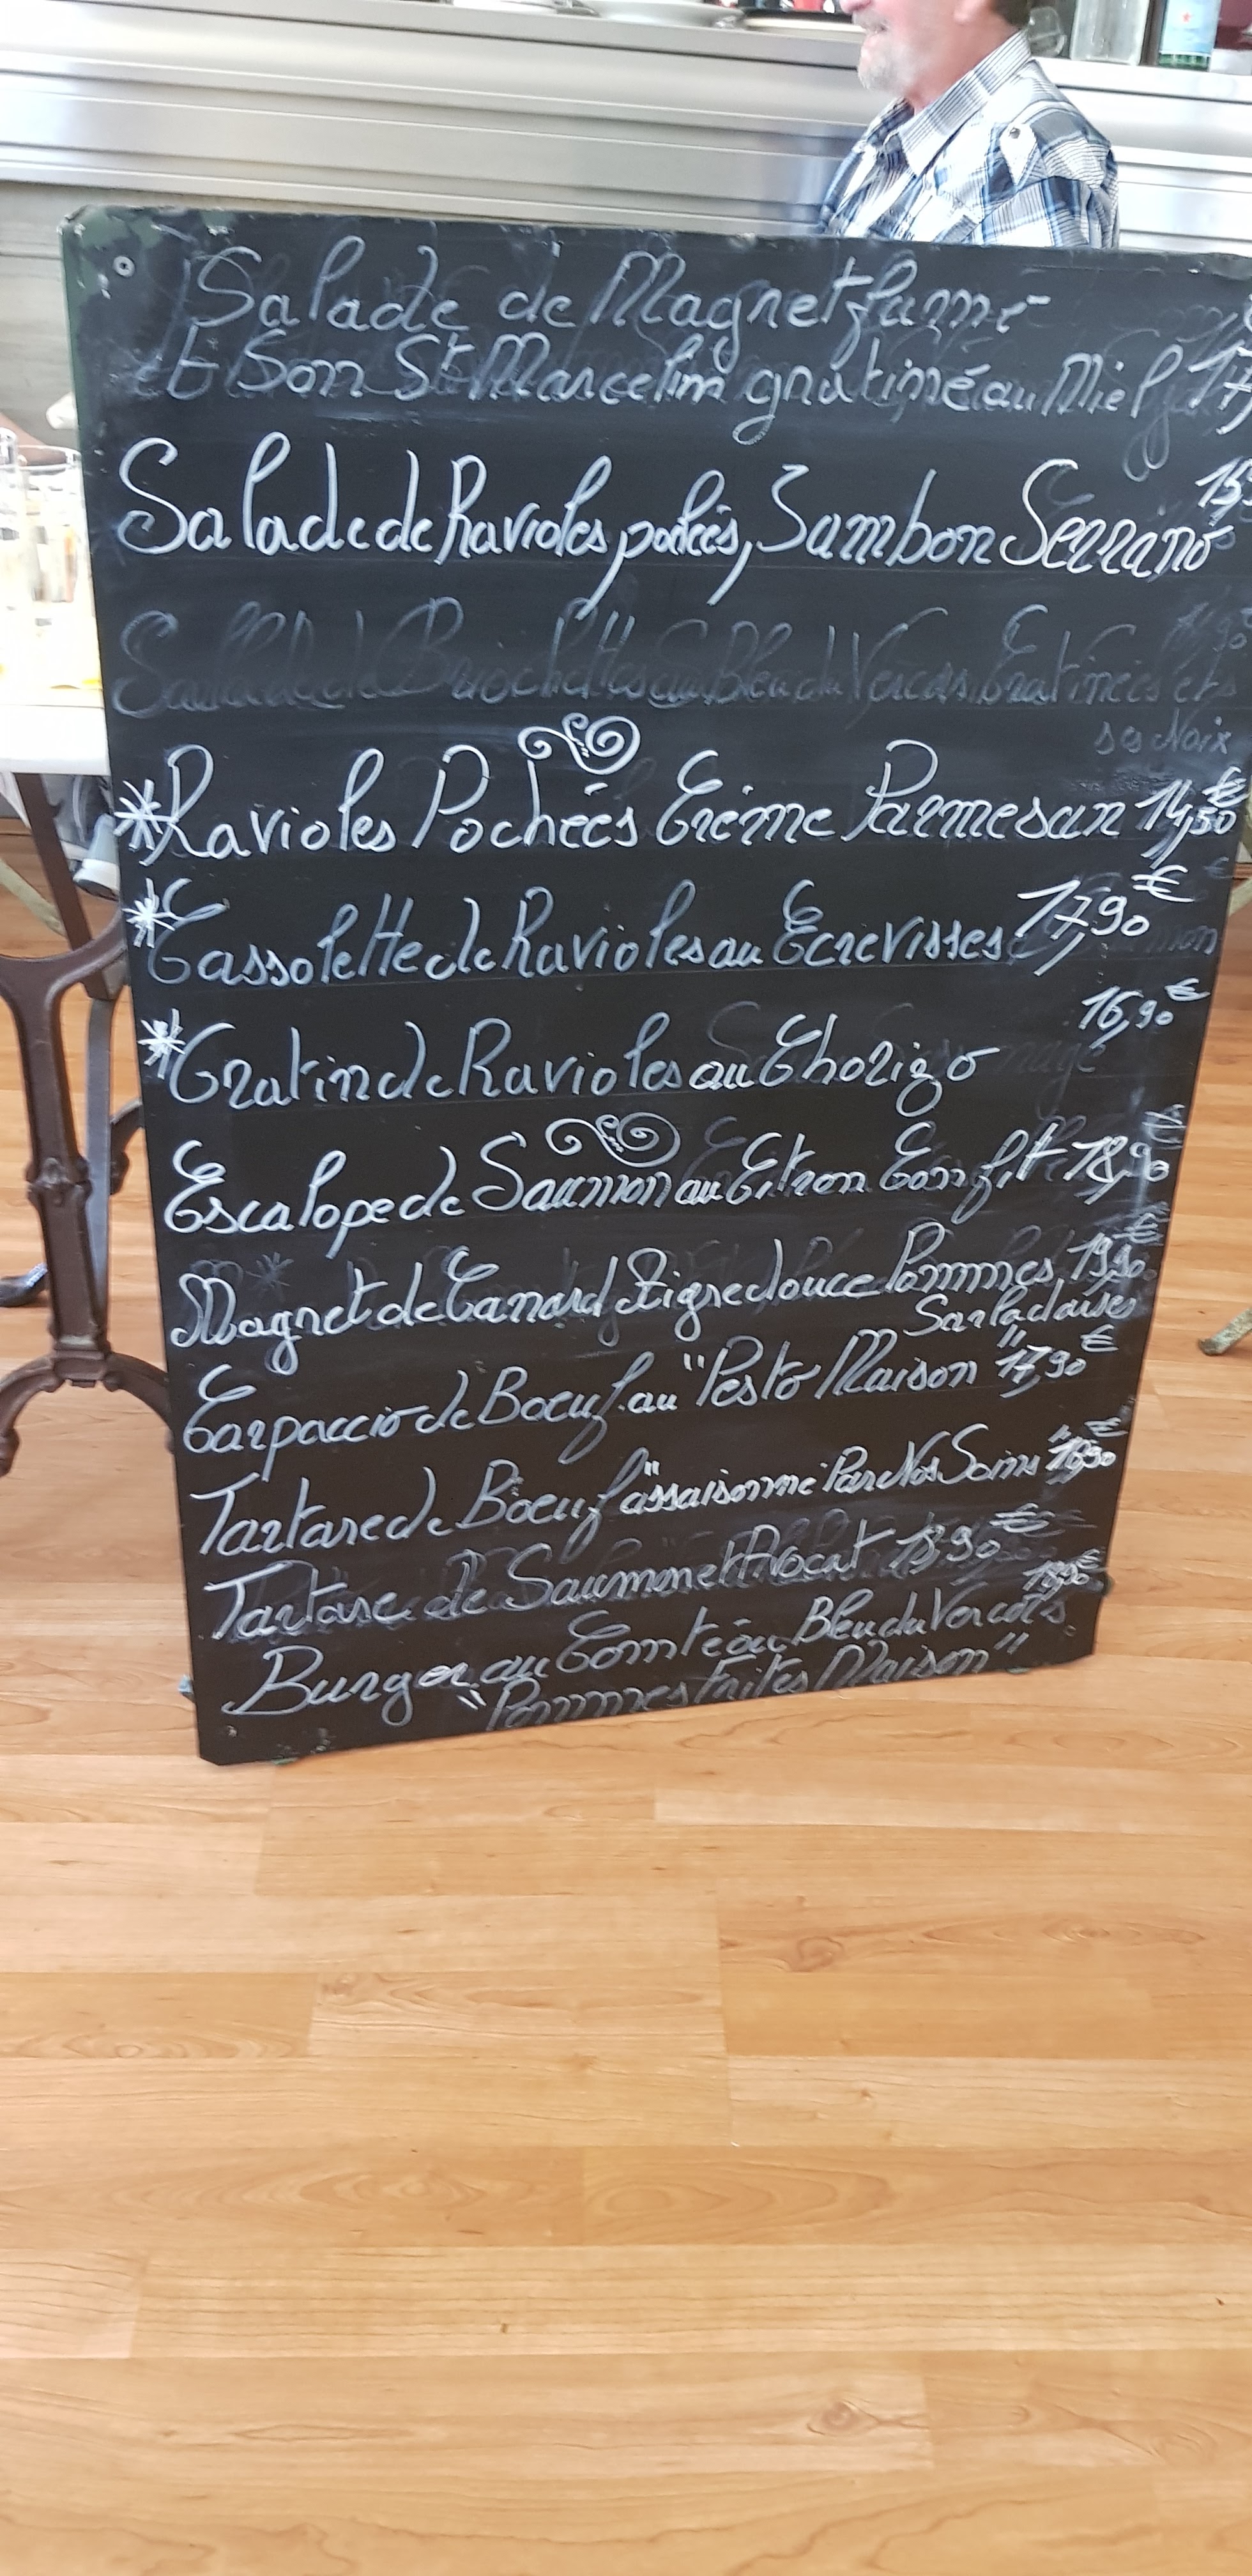 Salade de Magret fumé
et Son St Marcelin gratiné au Miel 17,
Salade de Ravioles pochées, Jambon Serrano 15,
Salade de Briochettes au Bleu du Vercors Gratinées et
ses Noix
*Ravioles Pochées Crème Parmesan 14,50€
*Cassolette de Ravioles au Ecrevisses 17,90€
*Gratin de Ravioles au Chorizo 16,90€
Escalope de Saumon au Citron Confit 18,90
Magret de Canard Aigre douce Pommes 19,90€
Sarladaises
Carpaccio de Boeuf au "Pesto Maison" 17,90€
Tartare de Boeuf "assaisonné Par Nos Soins" €
Tartare de Saumon et Avocat €
Burger au Comté ou Bleu du Vercors €
"Pommes Frites Maison"